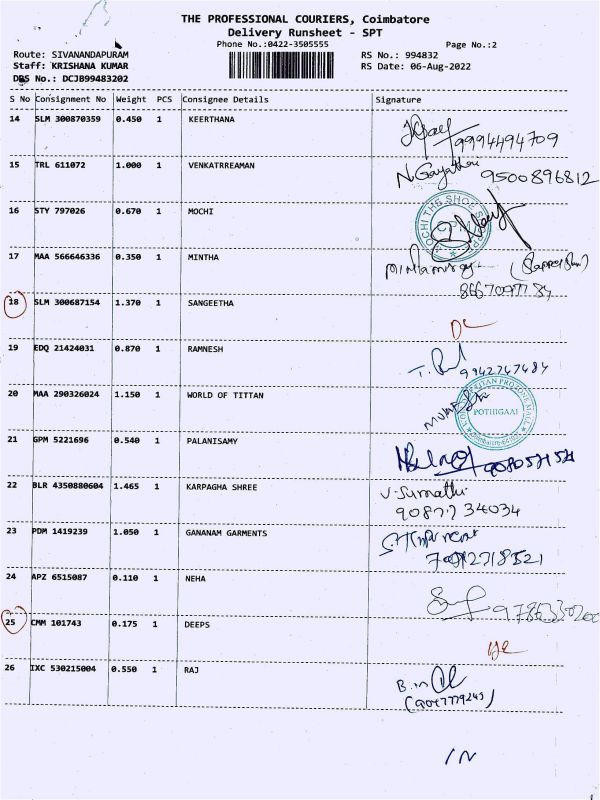 THE PROFESSIONAL COURIERS, Coimbatore
Delivery Runsheet - SPT
Phone No.:0422-3505555
Page No.:2
Route: SIVANANDAPURAM
RS No.: 994832
Staff: KRISHANA KUMAR
RS Date: 06-Aug-2022
DBS No.: DCJB99483202
S No Consignment No Weight PCS Consignee Details Signature
14 SLM 300870359 0.450 1 KEERTHANA
9994494709
15 TRL 611072 1.000 1 VENKATRREAMAN
N. Gayathri 9500896812
16 STY 797026 0.670 1 MOCHI
MOCHI THE SHOE
17 MAA 566646336 0.350 1 MINTHA
18 SLM 300687154 1.370 1 SANGEETHA
DC
19 EDQ 21424031 0.870 1 RAMNESH
9942747484
20 MAA 290326024 1.150 1 WORLD OF TITTAN
POTHIGAAI
21 GPM 5221696 0.540 1 PALANISAMY
22 BLR 4350880604 1.465 1 KARPAGHA SHREE
V. Sumathi
23 PDM 1419239 1.050 1 GANANAM GARMENTS
24 APZ 6515087 0.110 1 NEHA
25 CMM 101743 0.175 1 DEEPS
26 IXC 530215004 0.550 1 RAJ
IN